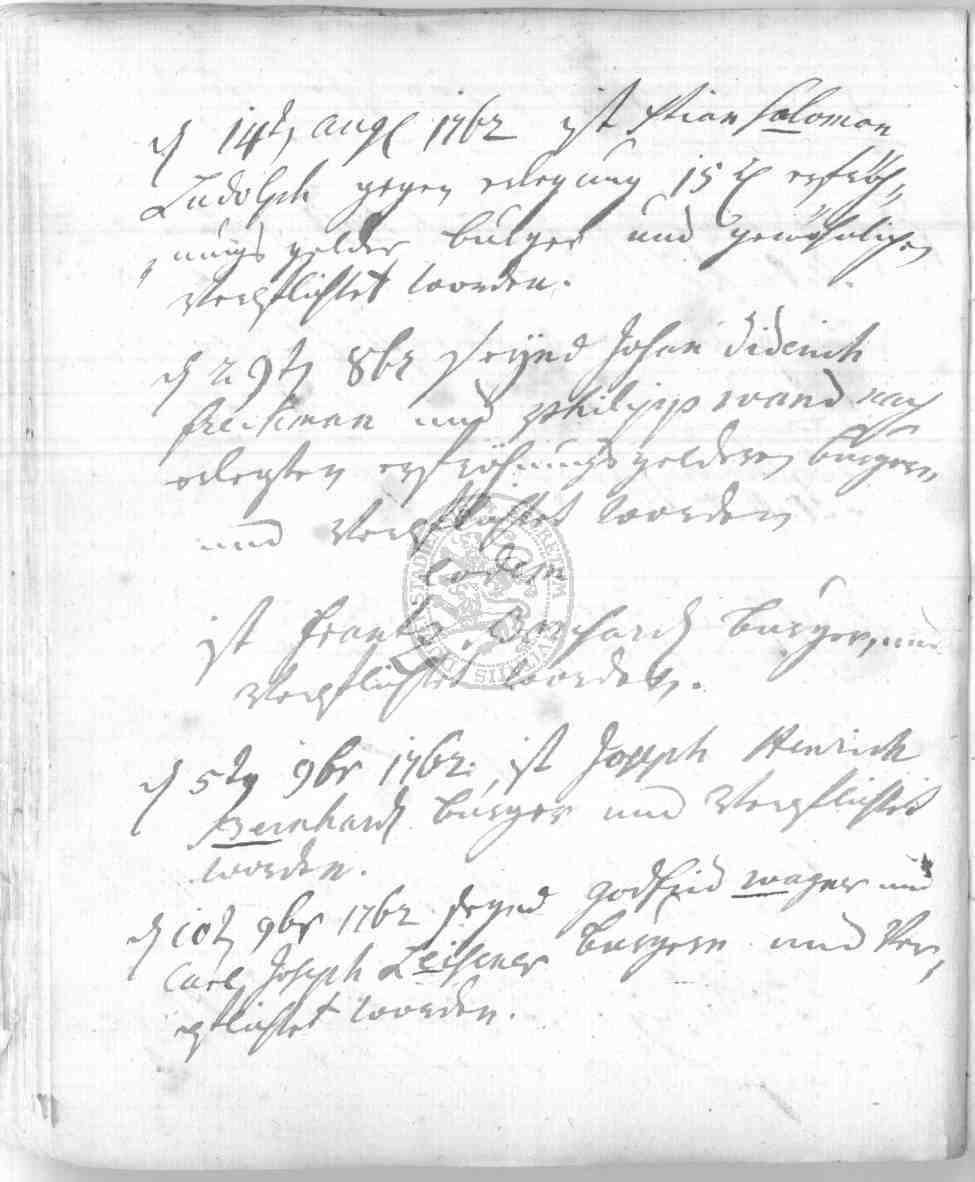 d 14t, aug 1762 ist Stian Salomon
Ludolph gegen erlegung 15
nungs gelder burger und gewöhnlicher
verpflichtet worden.
d 29t 8br seynd Johan Diderich
und Philipp wand nach
erlegten geldern burgern
und verpflichtet worden
eodem
ist Frantz burger und
verpflichtet worden.
d 5t, 9br 1762. ist Joseph Henrich
Bernhard burger und verpflichtet
worden.
d 10t, 9br 1762 seynd Godfrid wagner und
Carl Joseph burgern und ver,
pflichtet worden.